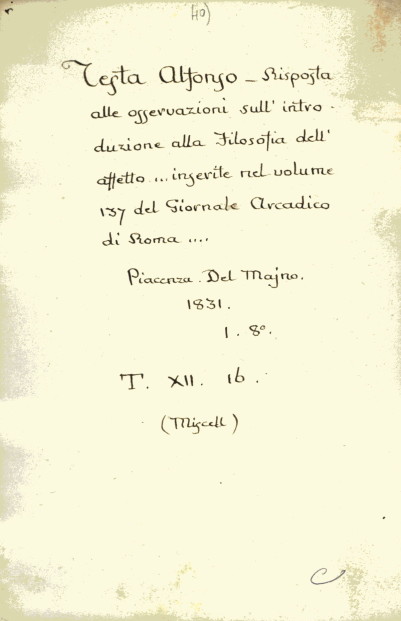 40)
Testa Alfonso – Risposta
alle osservazioni sull' intro-
duzione alla Filosofia dell'
affetto ... inserite nel volume
137 del Giornale Arcadico
di Roma ....
Piacenza. Del Majno.
1831.
1. 8º.
T. XII. 16.
(Miscell)